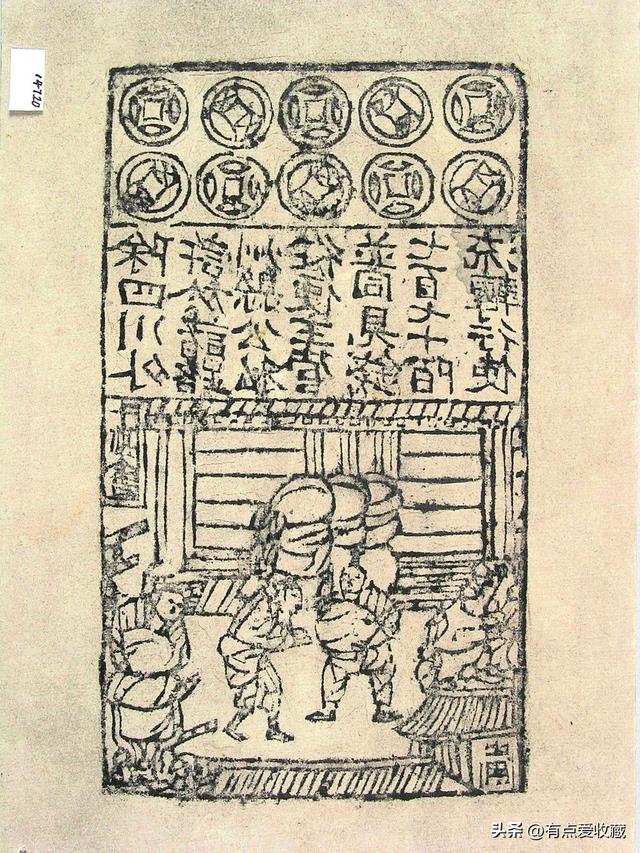 除四川外
許於諸路
州縣公私
從便主管
並同見錢
七百七十陌
流轉行使
头条 @有点爱收藏